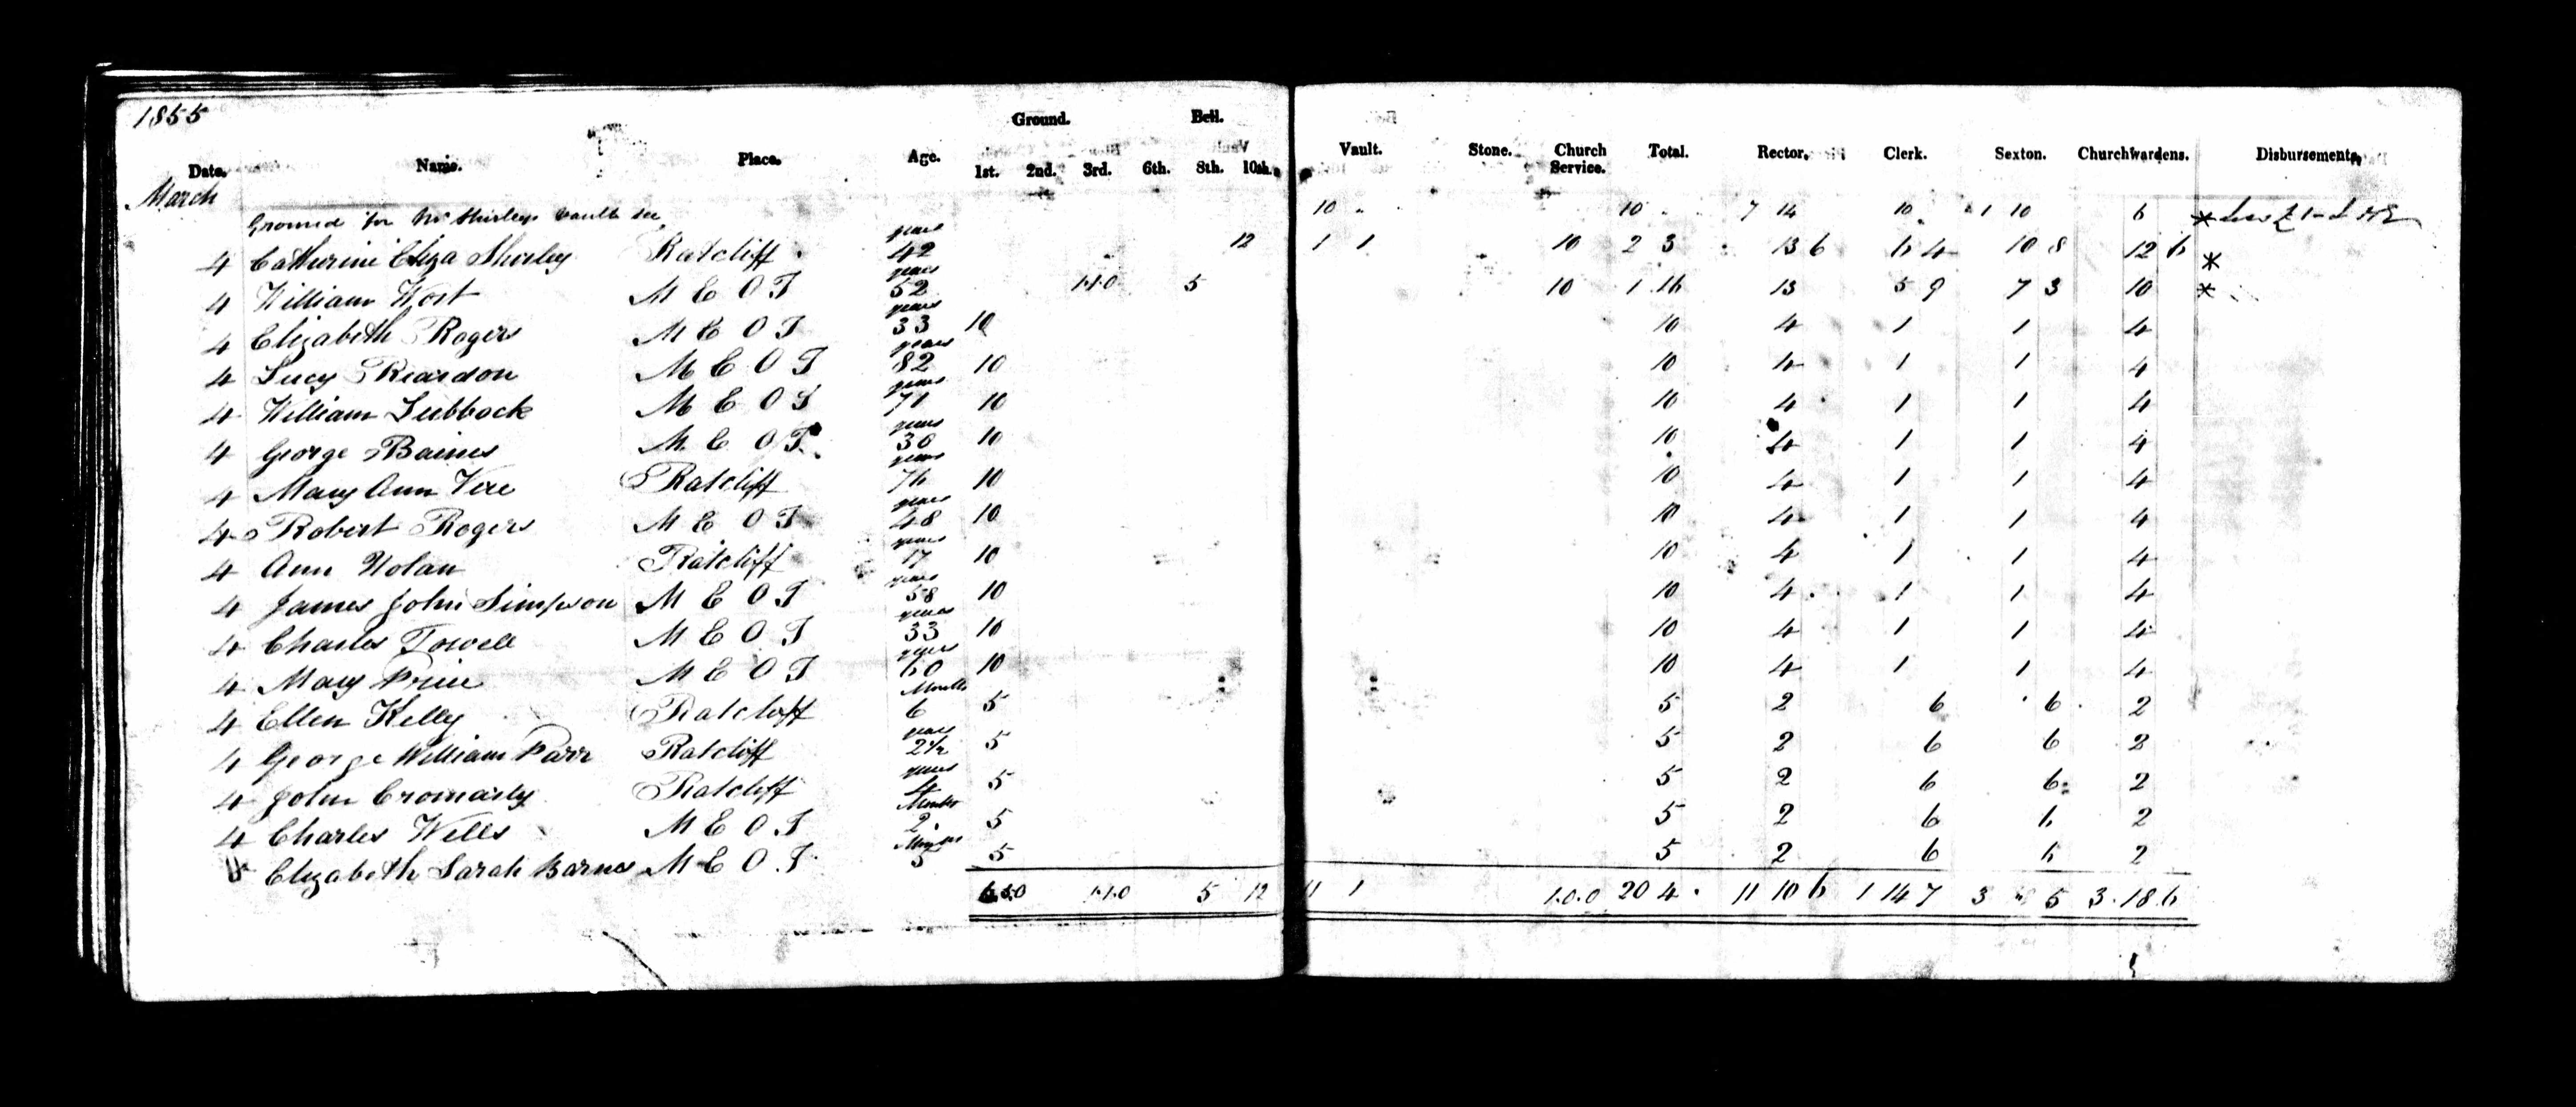 1855
Ground. Bell.
Date. Name. Place. Age. 1st. 2nd. 3rd. 6th. 8th. 10th. Vault. Stone. Church Service. Total. Rector. Clerk. Sexton. Churchwardens. Disbursements.
March
Ground for Mr Shirleys Vault 10 " 10 7 14 10 1 10 6 *
4 Catherine Eliza Shirley Ratcliff 42 years 12 1 1 10 2 3 13 6 6 4 10 8 12 6 *
4 William West M E O T 52 years 1.1.0 5 10 1 16 13 5 9 7 3 10 *
4 Elizabeth Rogers M E O T 33 years 10 10 4 1 1 4
4 Lucy Reardon M E O T 82 years 10 10 4 1 1 4
4 William Lubbock M E O T 71 years 10 10 4 1 1 4
4 George Baines M E O T 30 years 10 10 4 1 1 4
4 Mary Ann Vere Ratcliff 76 years 10 10 4 1 1 4
4 Robert Rogers M E O T 48 years 10 10 4 1 1 4
4 Ann Nolan Ratcliff 17 years 10 10 4 1 1 4
4 James John Simpson M E O T 58 years 10 10 4 1 1 4
4 Charles Towell M E O T 33 years 10 10 4 1 1 4
4 Mary Price M E O T 60 years 10 10 4 1 1 4
4 Ellen Kelly Ratcliff 6 Months 5 5 2 6 6 2
4 George William Parr Ratcliff 2½ years 5 5 2 6 6 2
4 John Cromarty Ratcliff 4 years 5 5 2 6 6 2
4 Charles Wells M E O T 2 Months 5 5 2 6 6 2
4 Elizabeth Sarah Barnes M E O T 5 5 5 2 6 6 2
6.5.0 1.1.0 5 12 11 1 1.0.0 20 4 11 10 6 1 14 7 3 5 3.18.6